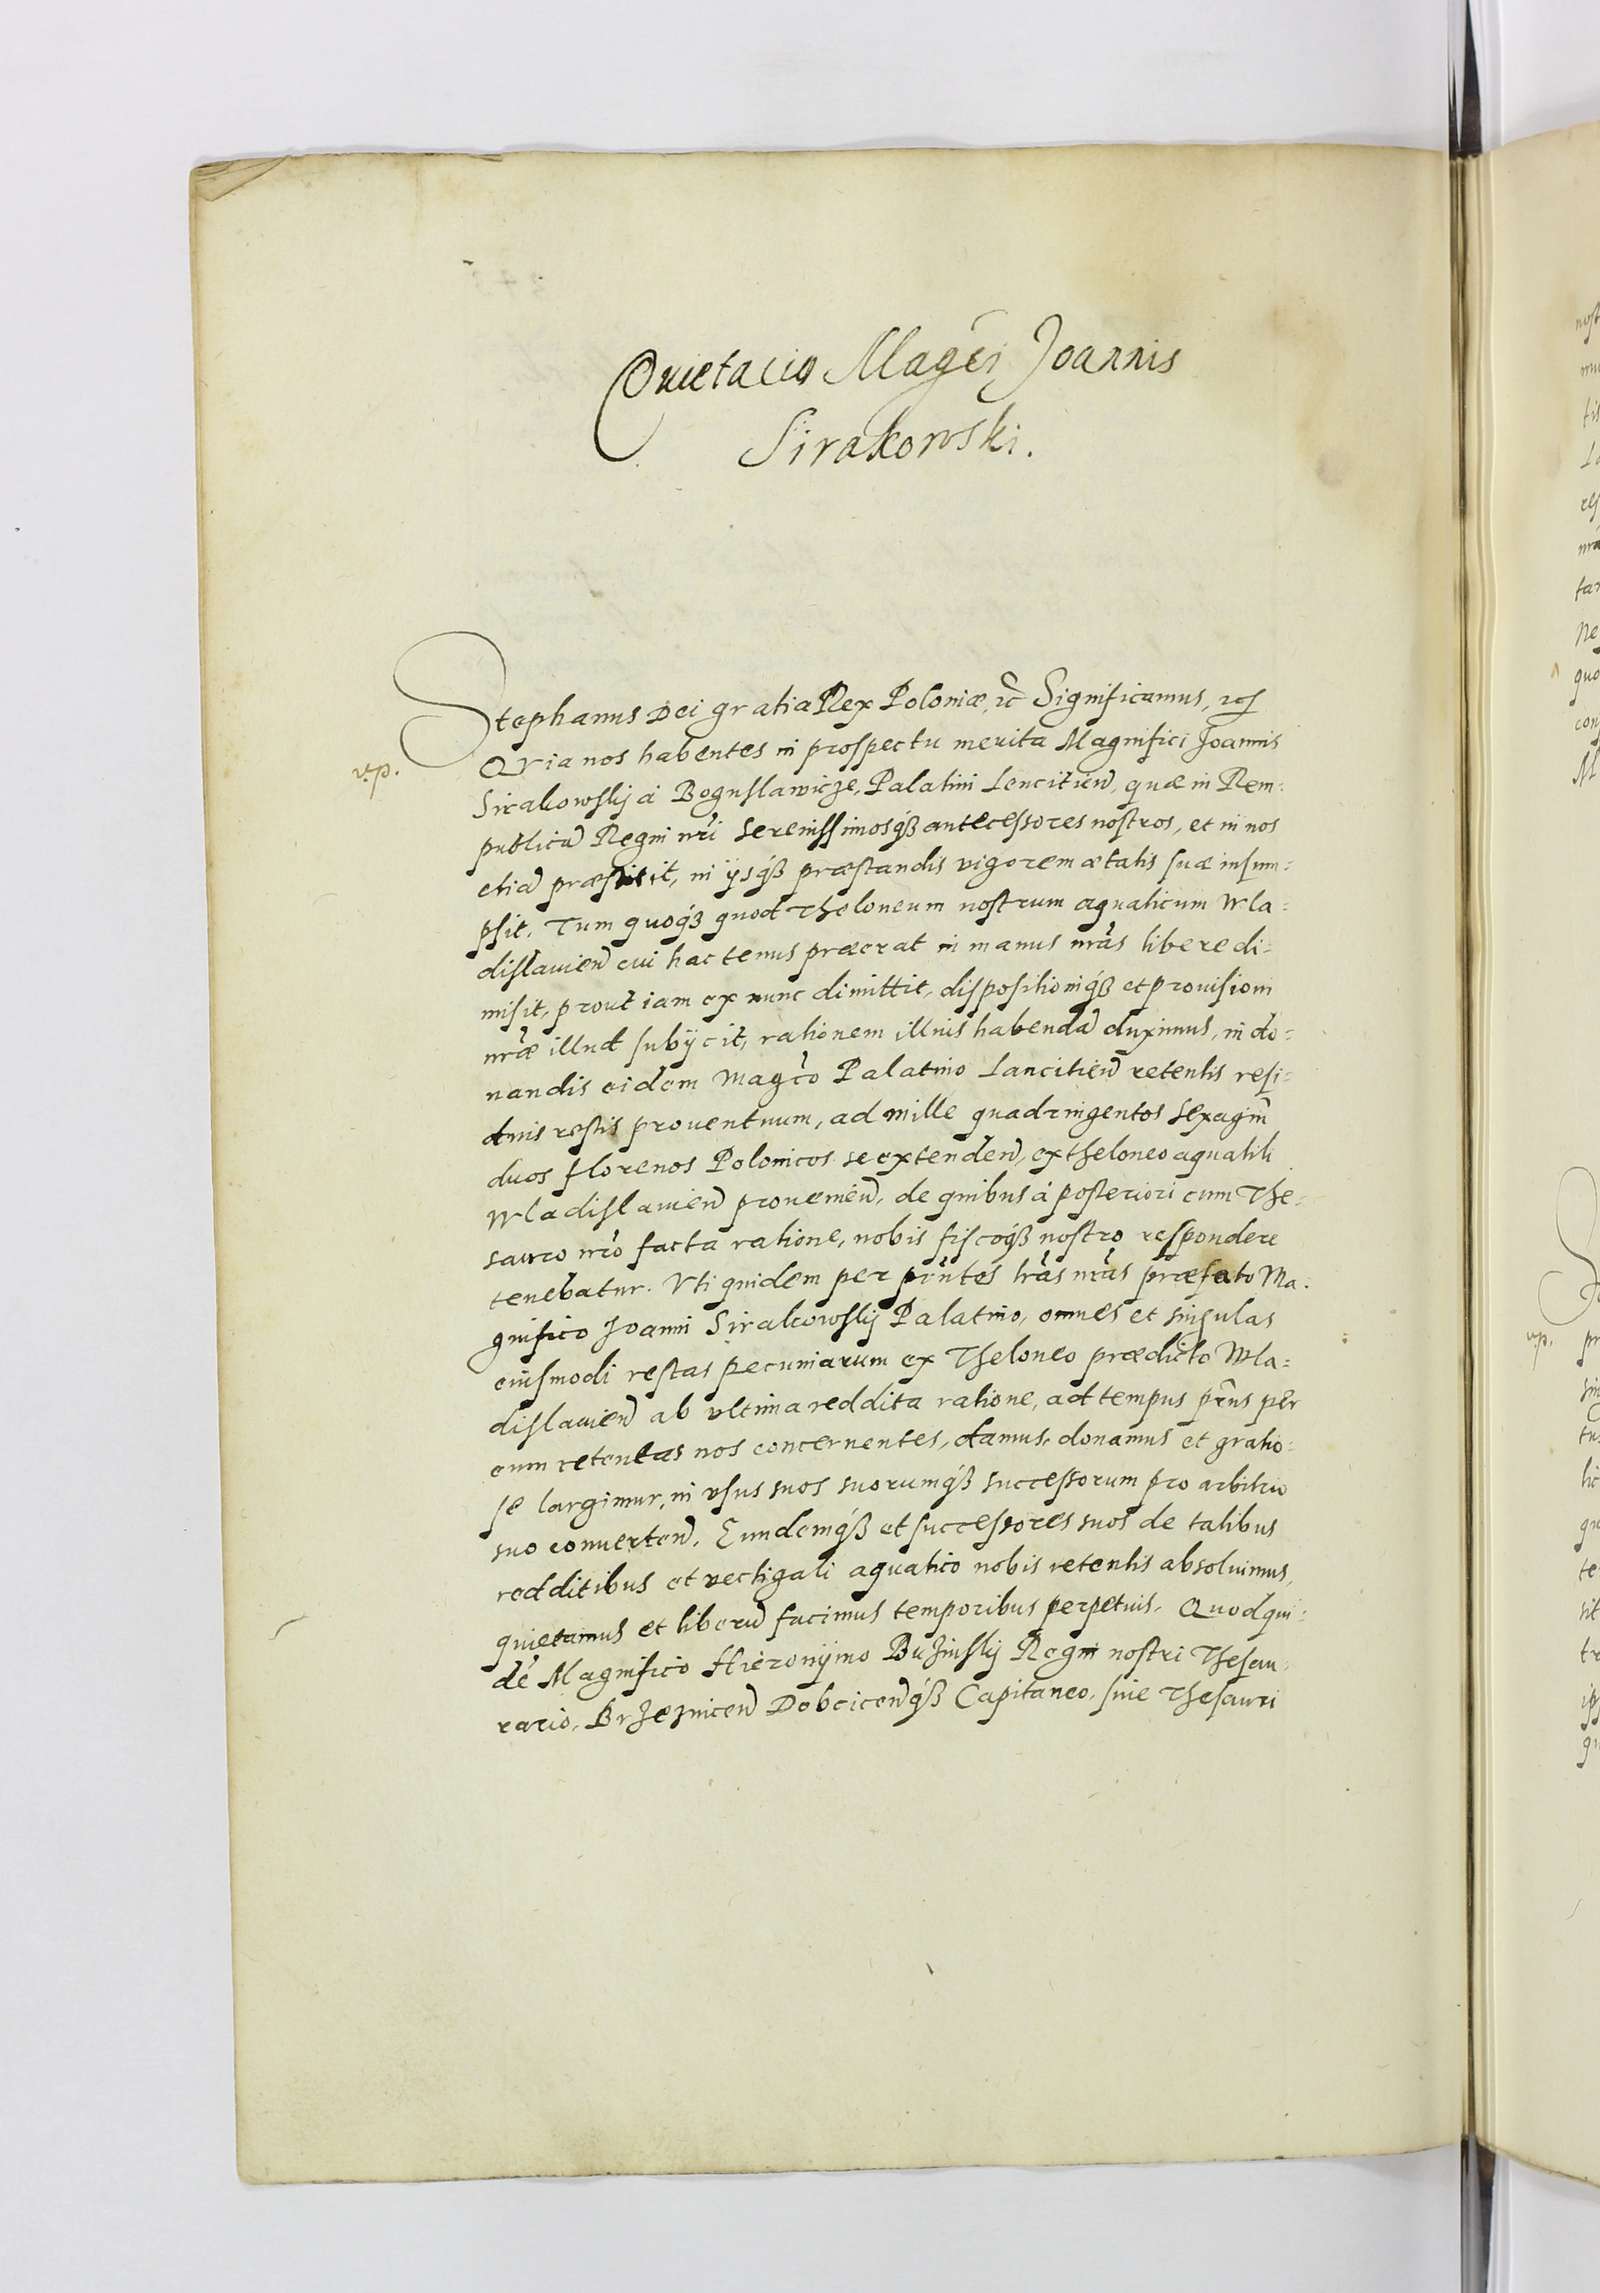 Quietacio Magci Joannis
Sirakowski.
Stephanus Dei gratia Rex Poloniæ, etc Significamus, etc
v.p.
Quia nos habentes in prospectu merita Magnifici Joannis
Sirakowskij à Boguslawicze, Palatini Lencitien, quæ in Rem-
publicã Regni nri serenissimosq́ꝫ antecessores nostros, et in nos
etiã præstitit, in ijsq́ꝫ præstandis vigorem ætatis suæ insum-
psit. Tum quoq́ꝫ quod Theloneum nostrum aquaticum Wla-
dislauien cui hactenus præerat in manus nras libere di-
misit, prout iam ex nunc dimittit, dispositioniq́ꝫ et prouisioni
nræ illud subijcit, rationem illius habendã duximus, in do-
nandis eidem Magco Palatino Lancitien retentis resi-
duis restis prouentuum, ad mille quadringentos sexagin
duos florenos Polonicos se extenden, ex theloneo aquatili
Wladislauien prouenien, de quibus à posteriori cum The-
sauro nro facta ratione, nobis fiscoq́ꝫ nostro respondere
tenebatur. Vti quidem per pruntes lras nras præfato Ma-
gnifico Joanni Sirakowskij Palatino, omnes et singulas
eiusmodi restas pecuniarum ex Theloneo prædicto Wla-
dislauien ab vltima reddita ratione, ad tempus prns per
eum retentas nos concernentes, damus, donamus et gratio-
se largimur, in vsus suos suorumq́ꝫ successorum pro arbitrio
suo conuerten. Eundemq́ꝫ et successores suos de talibus
redditibus et vectigali aquatico nobis retentis absoluimus,
quietamus et liberũ facimus temporibus perpetuis. Quod qui-
dẽ Magnifico Hieronijmo Buzinskij Regni nostri Thesau-
rario, Brzeznicen Dobcicenq́ꝫ Capitaneo, siue Thesauri